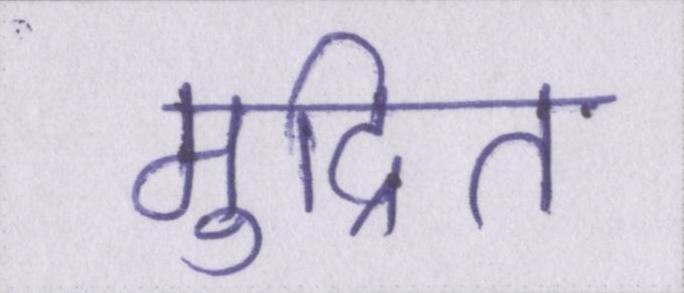 मुद्रित